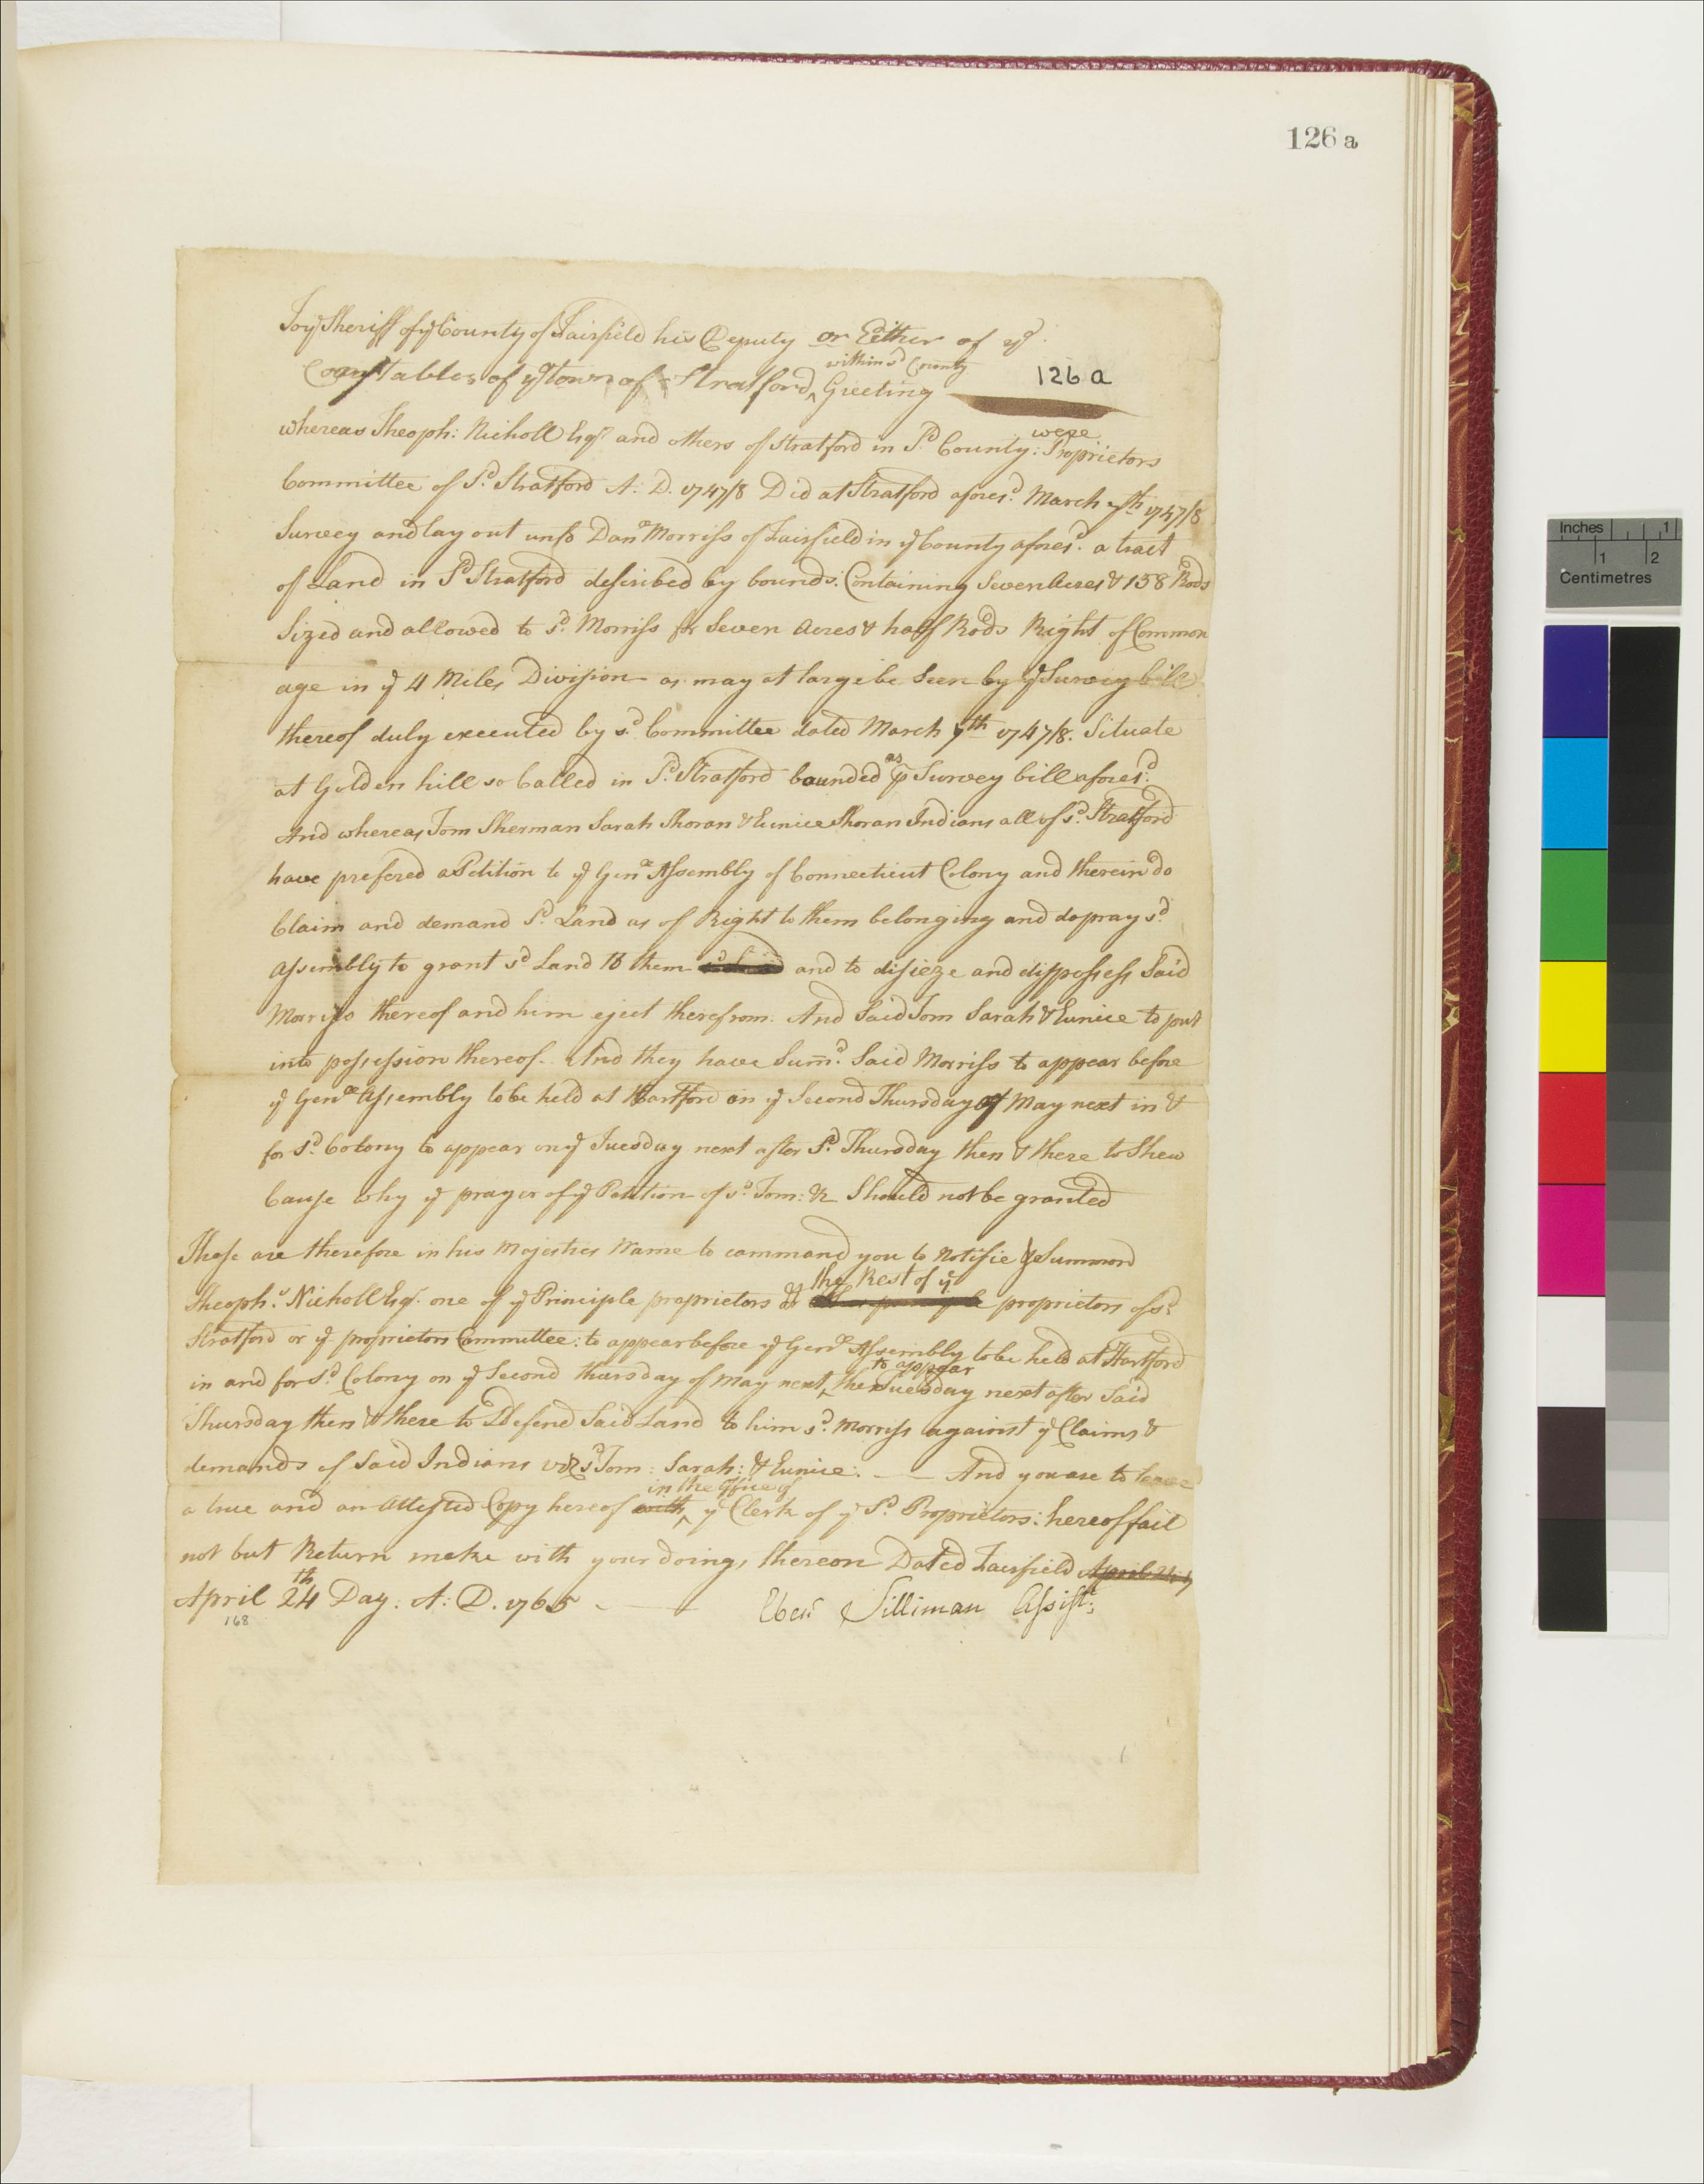 126 a
To yᵉ Sheriff of yᵉ County of Fairfield his Deputy or Either of yᵉ
Constables of yᵉ town of Stratford ‸ within sᵈ County Greeting
126 a
whereas Theoph: Nicholl Esqʳ and others of Stratford in Sᵈ County: were Proprietors
Committee of Sᵈ Stratford A: D. 1747/8 Did at Stratford aforesᵈ March 7th 1747/8
Survey and lay out unto Danˡˡ Morriss of Fairfield in yᵉ County aforesᵈ. a tract
of Land in Sᵈ Stratford described by bounds: Containing Seven Acres & 138 Rods
Sized and allowed to sᵈ Morriss for Seven Acres & half Rods Right of Common
age in yᵉ 4 Miles Division as may at large be Seen by yᵉ Survey bill
thereof duly executed by sᵈ Committee dated March 7th 1747/8. Situate
at Golden hill so Called in Sᵈ Stratford bounded as ꝑ Survey bill aforesᵈ.
And whereas Tom Sherman Sarah Shoran & Eunice Shoran Indians all of sᵈ Stratford
have prefered a Petition to yᵉ Genˡˡ Assembly of Connecticut Colony and therein do
Claim and demand Sᵈ Land as of Right to them belonging and do pray sᵈ
Assembly to grant sᵈ Land to them and to disieze and dispossess Said
Morriss thereof and him eject therefrom. And Said Tom Sarah & Eunice to put
into possession thereof. And they have Sum̅ᵈ Said Morriss to appear before
yᵉ Genˡˡ Assembly to be held at Hartford on yᵉ Second Thursday of May next in &
for sᵈ Colony to appear on yᵉ Tuesday next after sᵈ Thursday then & there to Shew
Cause why yᵉ prayer of yᵉ Petition of sᵈ Tom: &c Should not be granted
These are therefore in his Majesties Name to command you to Notifie & Summon
Theophˢ Nicholl Esqʳ. one of yᵉ Principle proprietors & the Rest of yᵉ proprietors of sᵈ
Stratford or yᵉ proprietors Committee: to appear before yᵉ Genˡˡ Assembly to be held at Hartford
in and for Sᵈ Colony on yᵉ Second thursday of May next ‸ to appear the Tuesday next after Said
Thursday then & there to Defend Said Land to him sᵈ Morriss against yᵉ Claims &
demands of Said Indians viz sᵈ Tom: Sarah: & Eunice. — And you are to leave
a true and an Attested Copy hereof with ‸ in the Office of yᵉ Clerk of yᵉ Sᵈ Proprietors: hereof fail
not but Return make with your doings thereon Dated Fairfield April 24
April 24th Day. A: D. 1765 — Ebenʳ Silliman Assistᵗ:
168